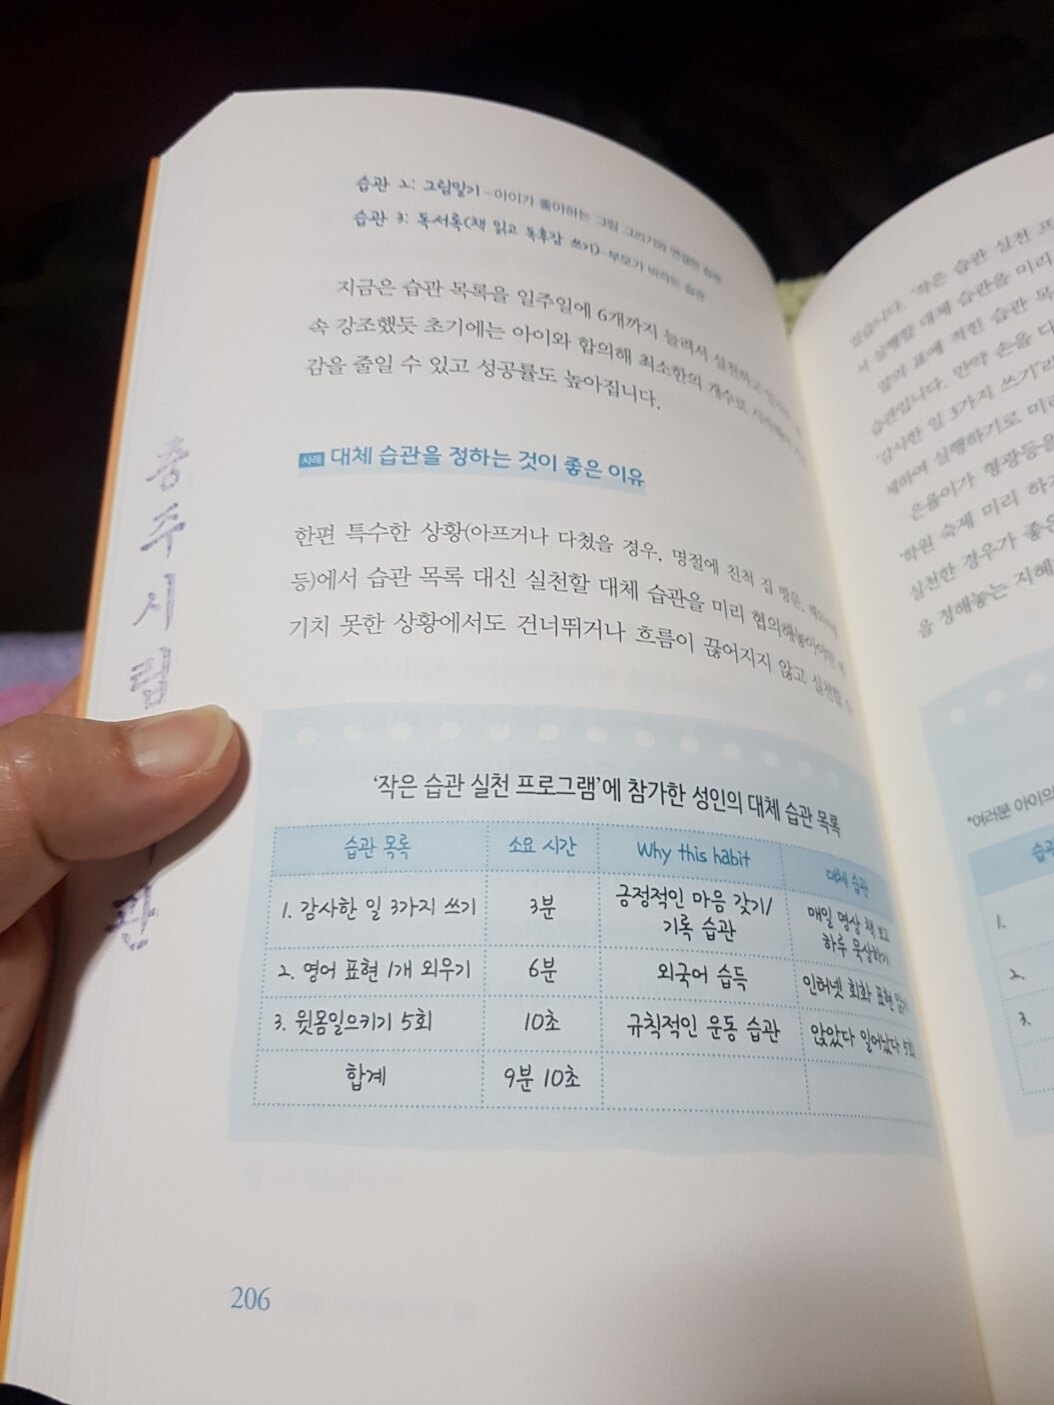 습관 2: 그림일기-아이가 좋아하는 그림 그리기와 연결된 습관
습관 3: 독서록(책 읽고 독후감 쓰기)-부모가 바라는 습관
지금은 습관 목록을 일주일에 6개까지 늘려서 실천하고
속 강조했듯 초기에는 아이와 합의해 최소한의 개수로 시작해야
감을 줄일 수 있고 성공률도 높아집니다.
사례 대체 습관을 정하는 것이 좋은 이유
한편 특수한 상황(아프거나 다쳤을 경우, 명절에 친척 집 방문,
등)에서 습관 목록 대신 실천할 대체 습관을 미리 협의해놓아야만
기치 못한 상황에서도 건너뛰거나 흐름이 끊어지지 않고 실천할 수
'작은 습관 실천 프로그램'에 참가한 성인의 대체 습관 목록
습관 목록 소요 시간 Why this habit 대체 습관
1. 감사한 일 3가지 쓰기 3분 긍정적인 마음 갖기/ 매일 명상 책 보고
기록 습관 하루 묵상하기
2. 영어 표현 1개 외우기 6분 외국어 습득 인터넷 회화 표현 읽기
3. 윗몸일으키기 5회 10초 규칙적인 운동 습관 앉았다 일어났다 5회
합계 9분 10초
206
충주시립
관
있습니다. '작은 습관 실천 프
서 실행할 대체 습관을 미리
앞의 표에 적힌 습관 목
습관입니다. 만약 손을 다
'감사한 일 3가지 쓰기'라
체하여 실행하기로 미리
은율이가 형광등을
'학원 숙제 미리 하기
실천한 경우가 좋은
을 정해놓는 지혜
*여러분 아이의
습관
1.
2.
3.